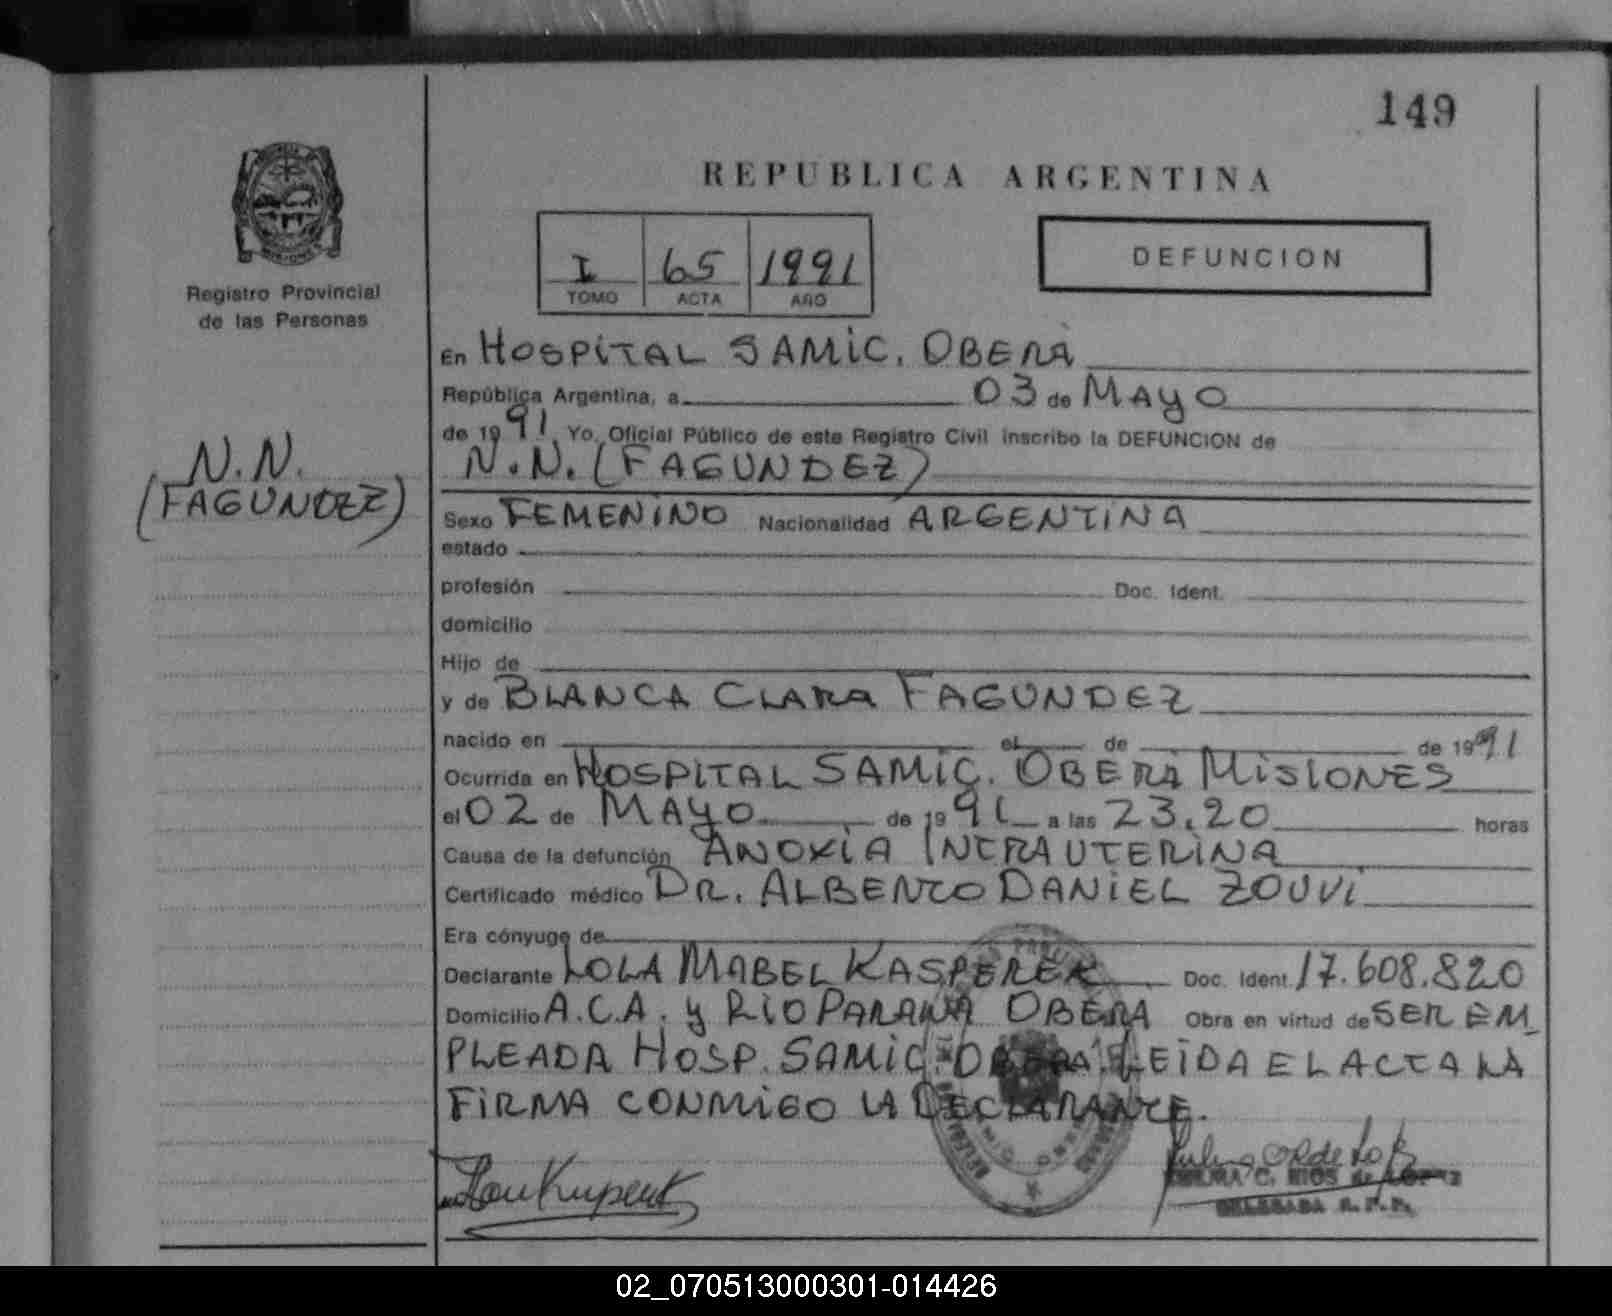 149
REPUBLICA ARGENTINA
Registro Provincial
de las Personas
I 65 1991
TOMO ACTA AÑO
DEFUNCION
N.N.
(FAGUNDEZ)
En HOSPITAL SAMIC. OBERÁ
República Argentina, a 03 de MAYO
de 1991. Yo, Oficial Público de este Registro Civil inscribo la DEFUNCION de
N.N. (FAGUNDEZ)
Sexo FEMENINO Nacionalidad ARGENTINA
estado
profesión Doc. Ident.
domicilio
Hijo de
y de BLANCA CLARA FAGUNDEZ
nacido en el de de 1991
Ocurrida en HOSPITAL SAMIC. OBERÁ MISIONES
el 02 de MAYO de 1991 a las 23.20 horas
Causa de la defunción ANOXIA INTRAUTERINA
Certificado médico DR. ALBERTO DANIEL ZOUVI
Era cónyuge de
Declarante LOLA MABEL KASPEREK Doc. Ident. 17.608.820
Domicilio A.C.A. y RIO PARANA OBERA Obra en virtud de SER EM_
PLEADA HOSP. SAMIC. OBERA. LEIDA EL ACTA LA
FIRMA CONMIGO LA DECLARANTE.
C. RIOS de LOPEZ
DELEGADA R.P.P.
02_070513000301-014426